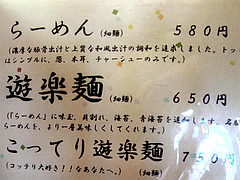 らーめん (細麺) 580円
(濃厚な豚骨出汁と上質な和風出汁の調和を追求しました。トッ
はシンプルに、葱、木耳、チャーシューのみです。)
遊楽麺 (細麺) 650円
(「らーめん」に味玉、貝割れ、海苔、青海苔を追加します。名
らーめんを、より一層美味しくしてくれます。)
こってり遊楽麺 (細麺) 750円
(コッテリ大好き!!なあなたへ。)